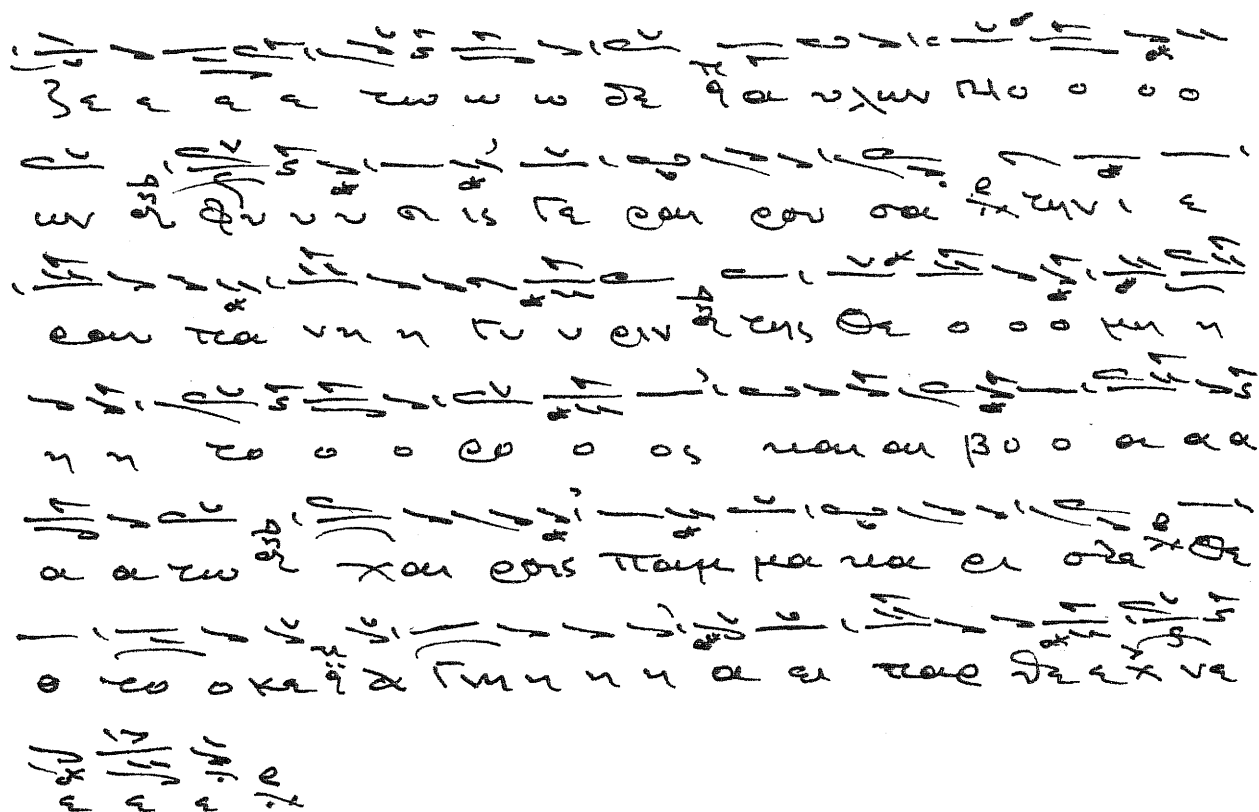 ζε ε ε ε τω ω ω δε α υλων Νο ο ο ο
ων η φυ υ υ σις γε ραι ρου σα την ι ε
ραν πα νη η γυ υ ριν της Θε ο ο ο μη η
η η το ο ο ρο ο ος και αι βο ο α α α
α α τω χαι ροις παμ μα κα ρι στε Θε
ο το ο κε α γνη η η η η α ει παρ θε ε νε
ε ε ε